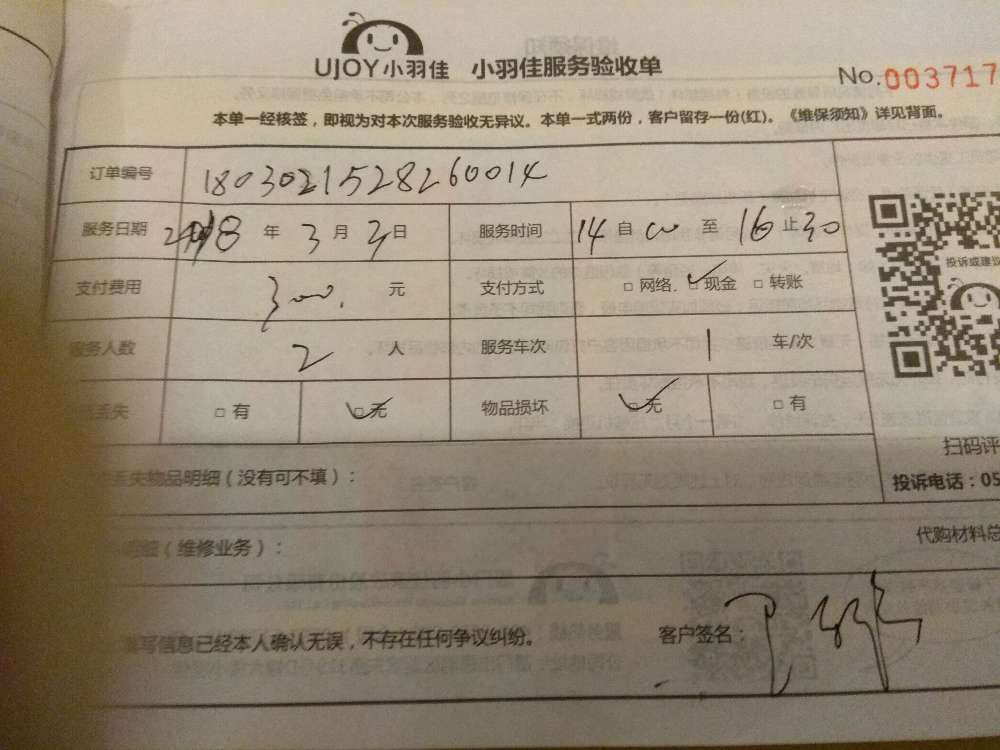 UJOY小羽佳 小羽佳服务验收单
No.003717
本单一经核签，即视为对本次服务验收无异议。本单一式两份，客户留存一份(红)。《维保须知》详见背面。
订单编号 1803021528260014
服务日期 2018 年 3 月 3 日 服务时间 14 自 00 至 16 止 30
投诉或建议
支付费用 300. 元 支付方式 □ 网络 □ 现金 □ 转账
服务人数 2 人 服务车次 1 车/次
丢失 □ 有 □ 无 物品损坏 □ 无 □ 有
扫码评
丢失物品明细（没有可不填）：
投诉电话：05
（维修业务）：
代购材料总
填写信息已经本人确认无误，不存在任何争议纠纷。 客户签名：